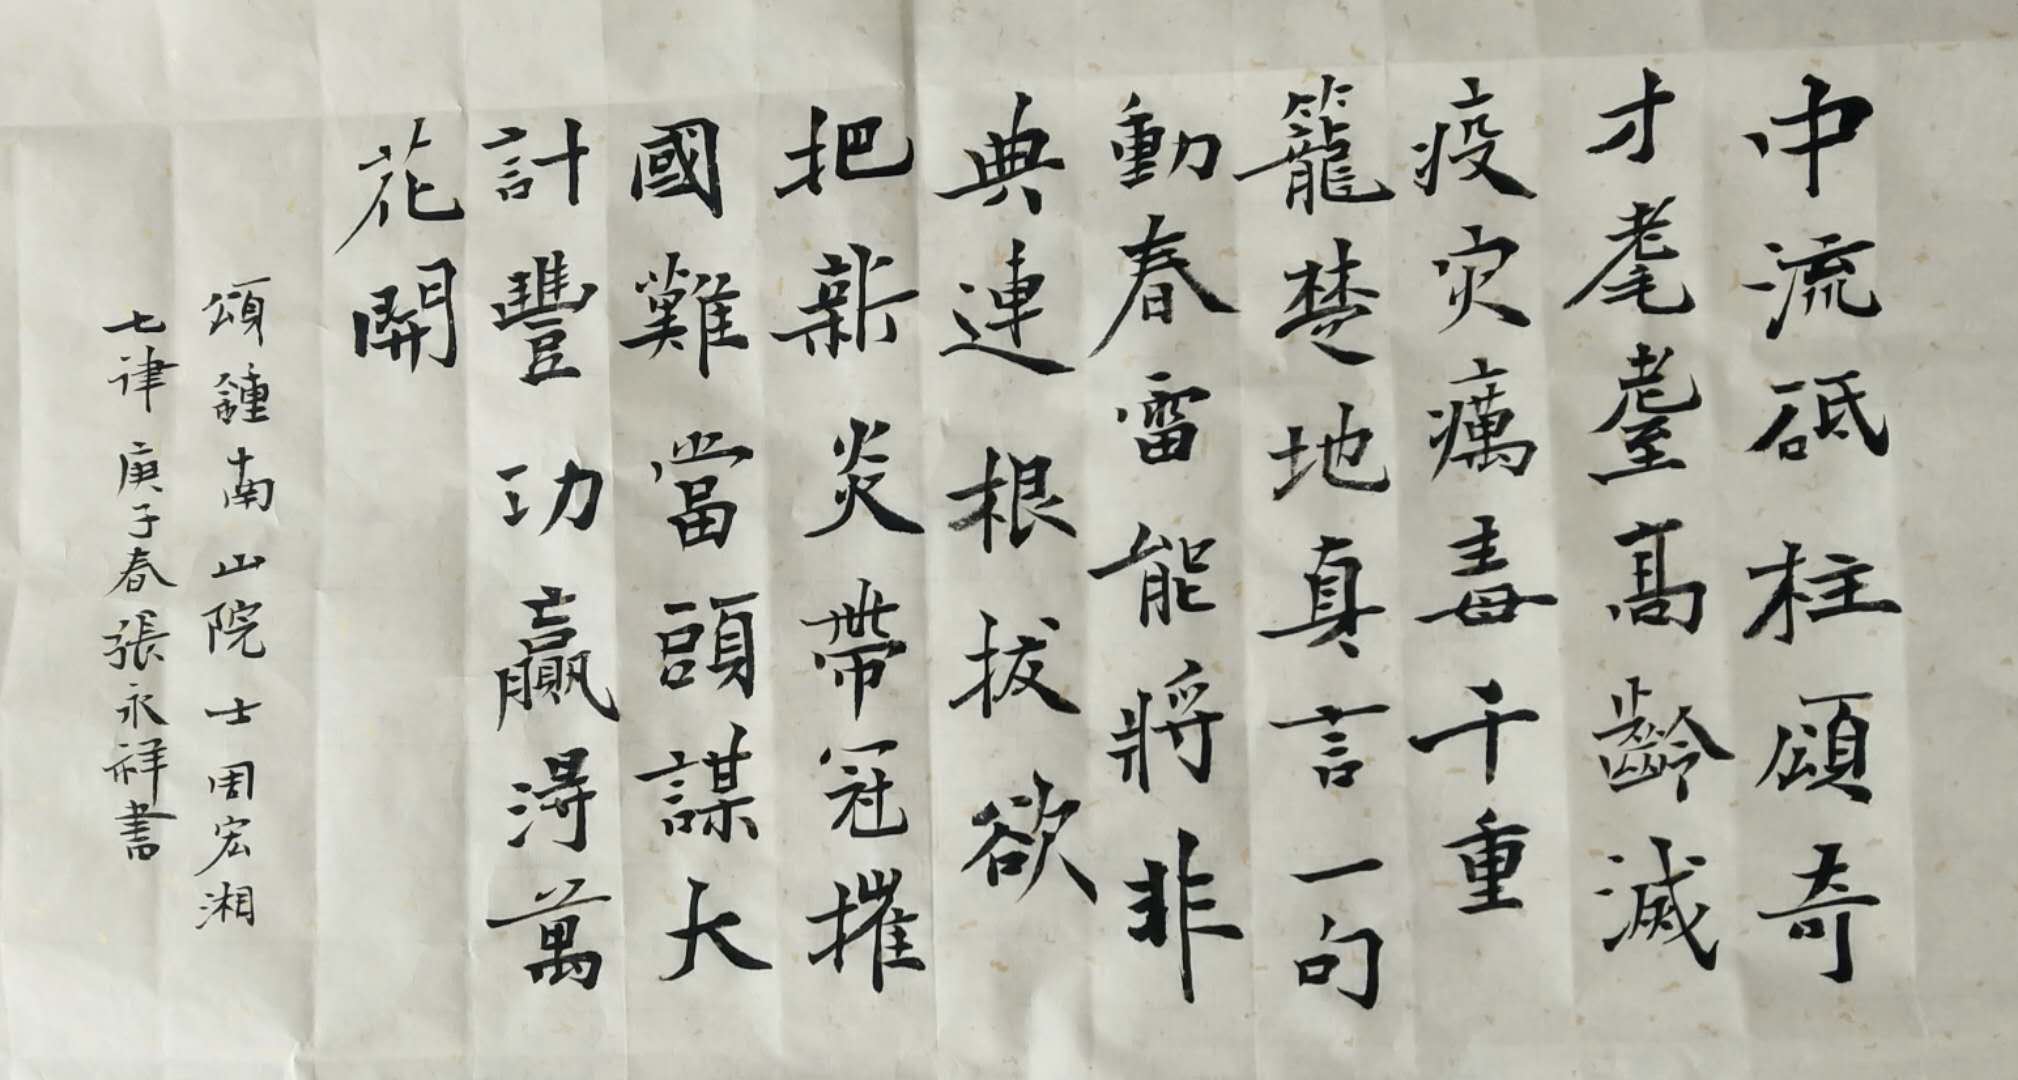 中流砥柱頌奇
才耄耋高齡滅
疫灾癘毒千重
籠楚地真言一句
動春雷能將非
典連根拔欲
把新炎帶冠摧
國難當頭謀大
計豐功贏得萬
花開
頌鍾南山院士周宏湘
七律庚子春張永祥書